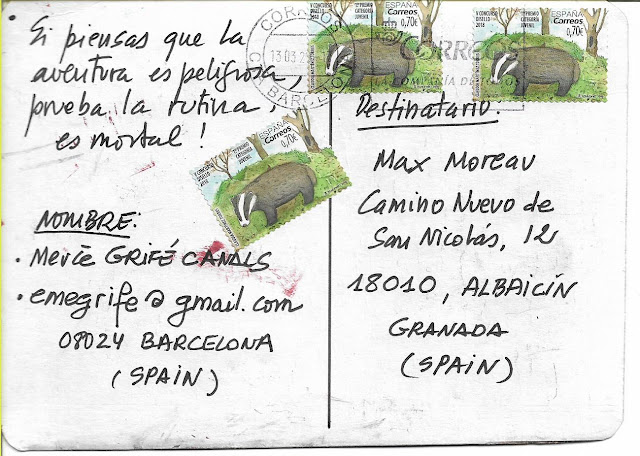 Si piensas que la
aventura es peligrosa,
prueba la rutina,
es mortal!
NOMBRE:
• Mercè GRIFÉ CANALS
• emegrife@gmail.com
08024 BARCELONA
(SPAIN)
CORREOS
13 03 2
BARCELO
CORREOS
LA COMPAÑÍA DE
V CONCURSO
DISELLO
2018
1er PREMIO
CATEGORÍA
JUVENIL
ESPAÑA
Correos
0,70€
V CONCURSO
DISELLO
2018
1er PREMIO
CATEGORÍA
JUVENIL
ESPAÑA
Correos
0,70€
V CONCURSO
DISELLO
2018
1er PREMIO
CATEGORÍA
JUVENIL
ESPAÑA
Correos
0,70€
Destinatario.
Max Moreau
Camino Nuevo de
San Nicolás, 12
18010, ALBAICÍN
GRANADA
(SPAIN)